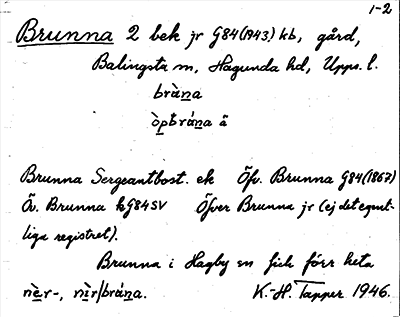 1-2
Brunna 2 bek jr G84(1943) kb, gård,
Balingsta sn, Hagunda hd, Upps. l.
brὰna
ὸptbrána å
Brunna Sergeantbost. ek Öfv. Brunna G84(1867)
Öv. Brunna kG84SV Öfver Brunna jr (ej det egent-
liga registret).
Brunna i Hagby sn fick förr heta
nὲr-, nìr/brána. K.-H. Tapper 1946.